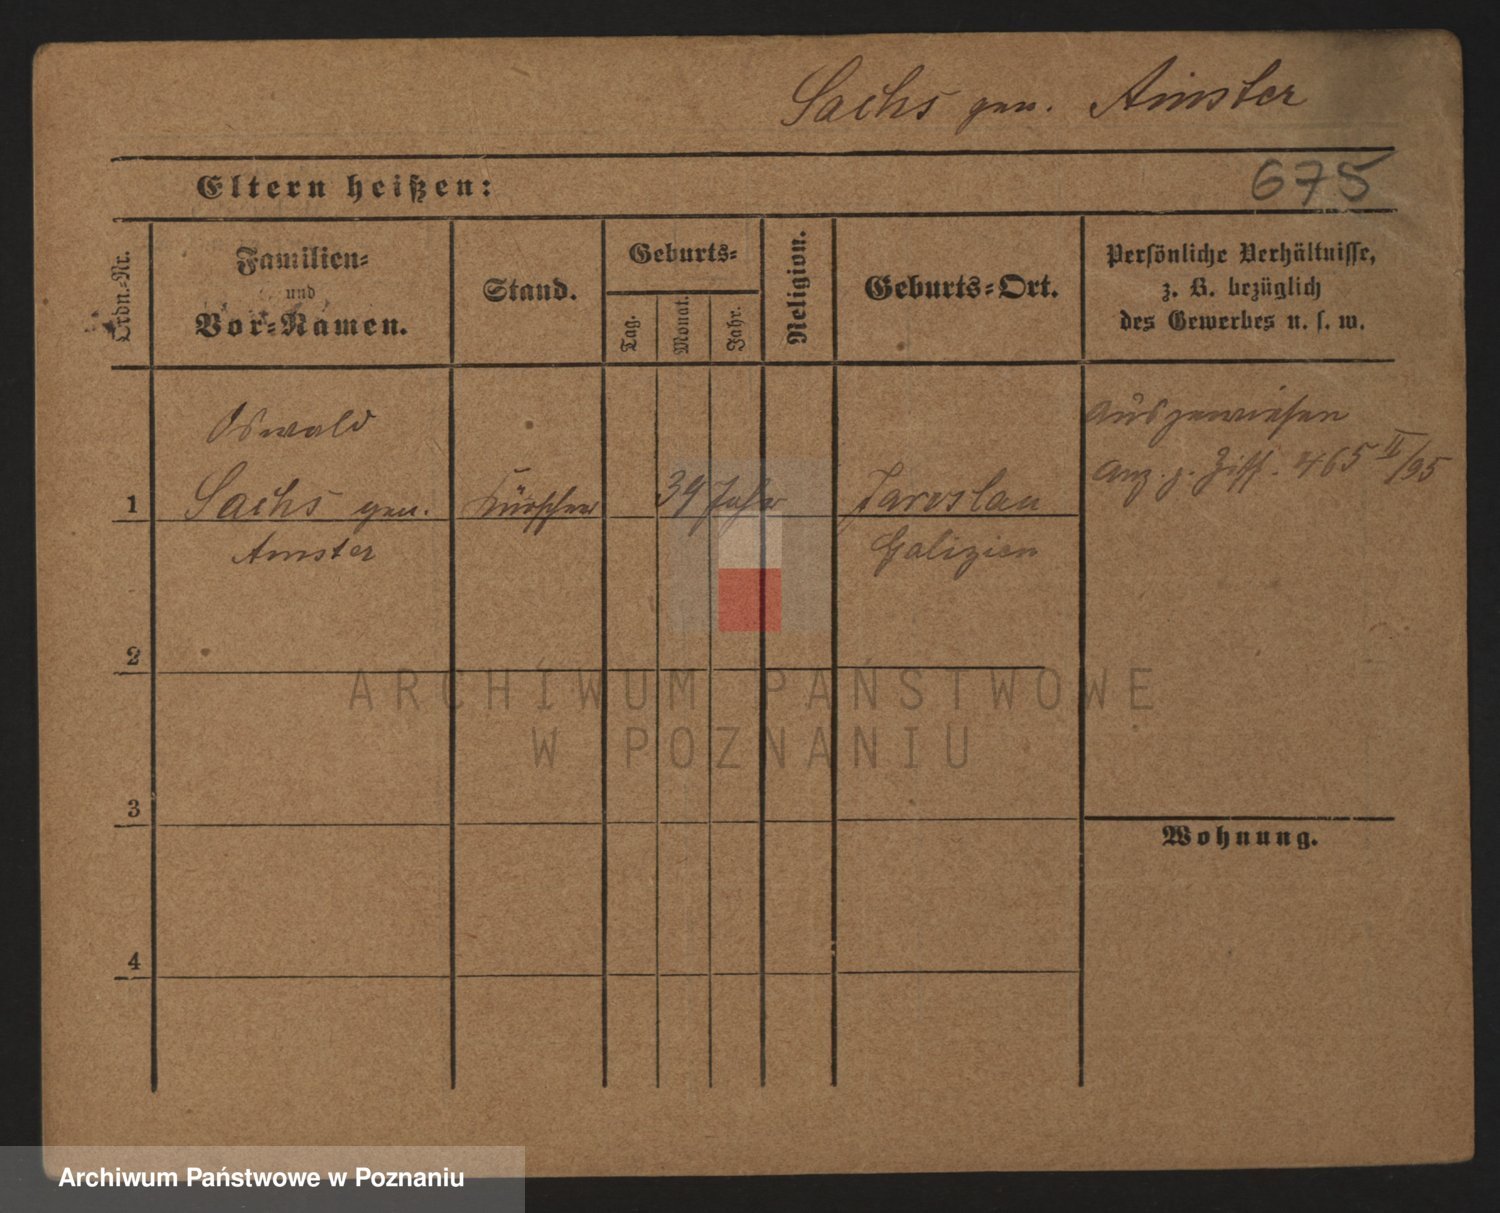 Sachs gen. Amster
Eltern heißen:
675
Ordn.-Nr.
Familien-
und
Vor-Namen.
Stand.
Geburts-
Tag.
Monat.
Jahr.
Religion.
Geburts-Ort.
Persönliche Verhältnisse,
z. B. bezüglich
des Gewerbes u. s. w.
Oswald
1 Sachs gen. Kürschner 39 Jahr Jaroslau
Amster Galizien
Ausgewiesen
Anz. z. Ziff. 465 II/95
2
3
Wohnung.
4
ARCHIWUM PAŃSTWOWE
W POZNANIU
Archiwum Państwowe w Poznaniu